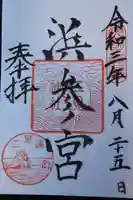 令和三年八月二十五日
浜参宮
奉拝